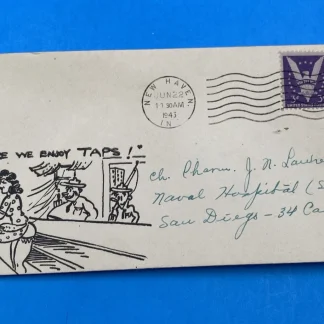 NEW HAVEN.
JUN 22
11 30 AM
1943
WE ENJOY TAPS!"
Ch. Pharm. J. N.
Naval Hospital (S
San Diego - 34 Ca